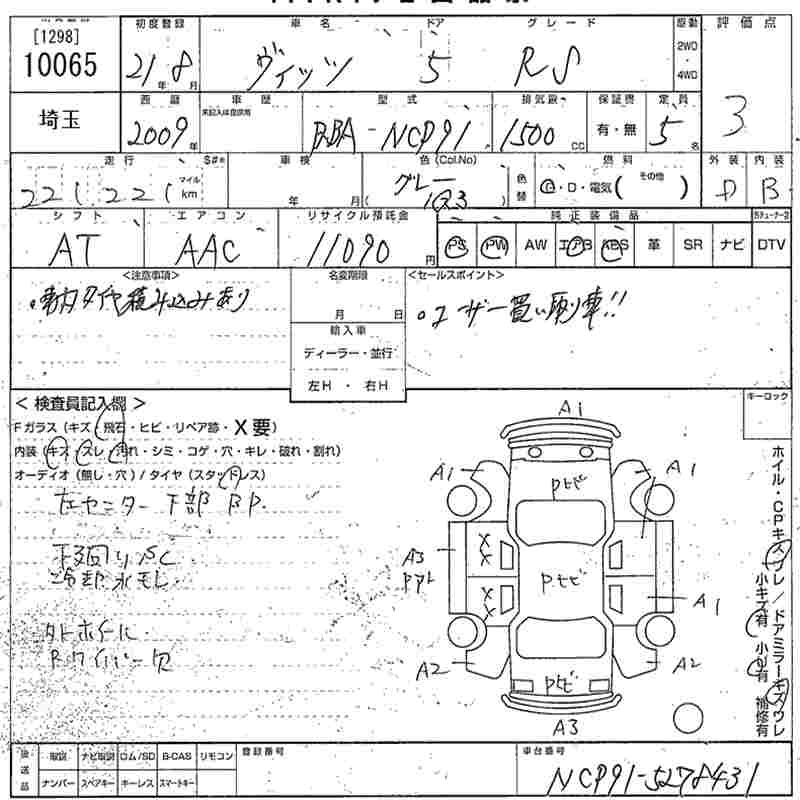 [1298]
10065
初度登録
21年 8月
車名
ヴィッツ
ドア
5
グレード
RS
駆動
2WD
4WD
評価点
3
埼玉
西暦
2009年
車歴
未記入は自家用
型式
DBA-NCP91
排気量
1500 CC
保証書
有・無
定員
5名
走行
221,221
マイル
km
S#*
車検
年 月
色(Col.No)
グレー
( 1G3 )
色替
燃料
G・D・電気( その他 )
外装
D
内装
B
シフト
AT
エアコン
AAC
リサイクル預託金
11090円
純正装備品
PS PW AW エアB ABS 革 SR ナビ
DTV
<注意事項>
。車内タイヤ積み込みあり
名変期限
月 日
輸入車
ディーラー・並行
左H ・ 右H
<セールスポイント>
。ユーザー買い取り車!!
< 検査員記入欄 >
Fガラス(キズ・飛石・ヒビ・リペア跡・X要)
内装(キズ・スレ・汚れ・シミ・コゲ・穴・キレ・破れ・割れ)
オーディオ(無し・穴)/タイヤ(スタッドレス)
左センター下部BP.
下廻りSC
冷却水モレ.
外ホイール
Rワイパー欠
キーロック
A1
A1
A1
Pトビ
X
X
X
X
A3
Pトビ
A1
A2
A2
Pトビ
A3
ホイル・CPキズワレ/ドアミラーキズワレ
小キズ有 小凹有 補修有
後送品
取説 ナビ取説 ロム/SD B-CAS リモコン
ナンバー スペアキー キーレス スマートキー
登録番号
車台番号
NCP91-5278431